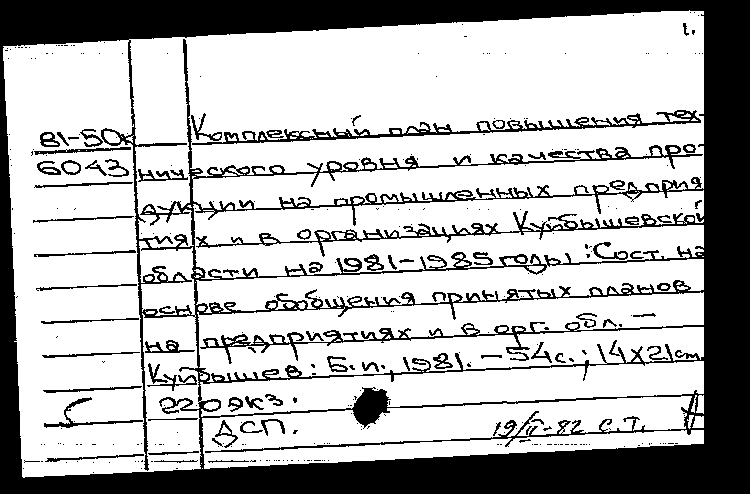 1.
81-50к Комплексный план повышения тех-
6043 нического уровня и качества про-
дукции на промышленных предприя
тиях и в организациях Куйбышевской
области на 1981-1985 годы : Сост. на
основе обобщения принятых планов
на предприятиях и в орг. обл. —
Куйбышев : Б.и., 1981. — 54 с. ; 14х21 см.
5 220 экз.
ДСП. 19/II-82 С.Т. А